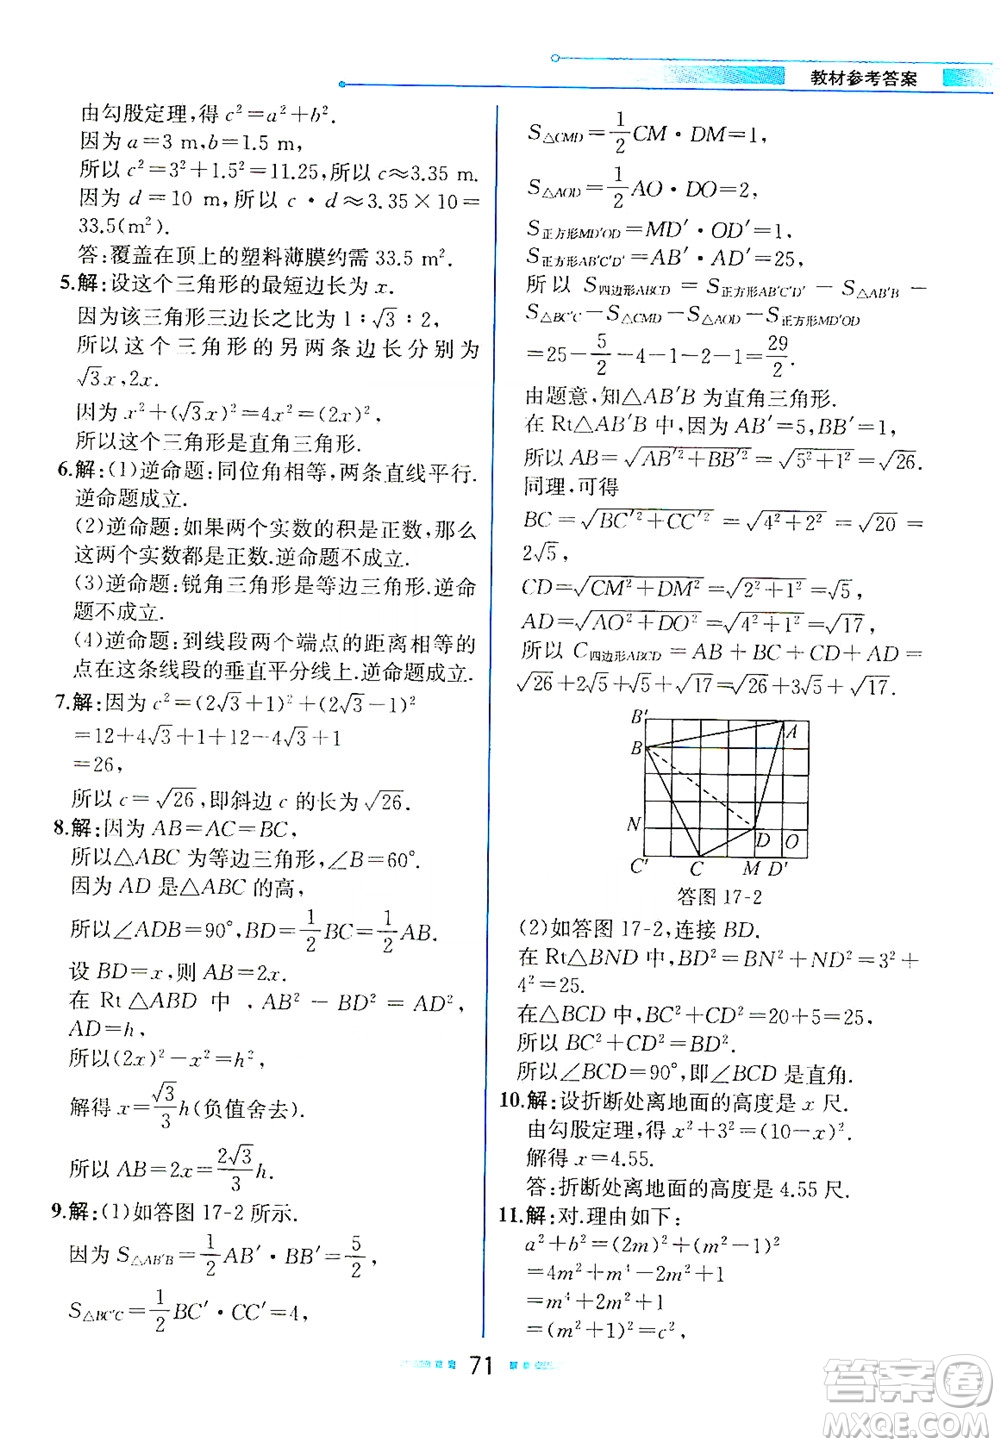 教材参考答案
由勾股定理,得 c²=a²+b².
因为 a=3 m,b=1.5 m,
所以 c²=3²+1.5²=11.25,所以 c≈3.35 m.
因为 d=10 m,所以 c·d≈3.35×10=
33.5(m²).
答:覆盖在顶上的塑料薄膜约需 33.5 m².
5.解:设这个三角形的最短边长为 x.
因为该三角形三边长之比为 1∶√3∶2,
所以这个三角形的另两条边长分别为
√3x,2x.
因为 x²+(√3x)²=4x²=(2x)²,
所以这个三角形是直角三角形.
6.解:(1)逆命题:同位角相等,两条直线平行.
逆命题成立.
(2)逆命题:如果两个实数的积是正数,那么
这两个实数都是正数.逆命题不成立.
(3)逆命题:锐角三角形是等边三角形.逆命
题不成立.
(4)逆命题:到线段两个端点的距离相等的
点在这条线段的垂直平分线上.逆命题成立.
7.解:因为 c²=(2√3+1)²+(2√3-1)²
=12+4√3+1+12-4√3+1
=26,
所以 c=√26,即斜边 c 的长为√26.
8.解:因为 AB=AC=BC,
所以△ABC 为等边三角形,∠B=60°.
因为 AD 是△ABC 的高,
所以∠ADB=90°,BD=1/2BC=1/2AB.
设 BD=x,则 AB=2x.
在 Rt△ABD 中,AB²-BD²=AD²,
AD=h,
所以(2x)²-x²=h²,
解得 x=√3/3h(负值舍去).
所以 AB=2x=2√3/3h.
9.解:(1)如答图 17-2 所示.
因为 S△AB′B=1/2AB′·BB′=5/2,
S△BC′C=1/2BC′·CC′=4,
S△CMD=1/2CM·DM=1,
S△AOD=1/2AO·DO=2,
S正方形MD′OD=MD′·OD′=1,
S正方形AB′C′D′=AB′·AD′=25,
所以 S四边形ABCD=S正方形AB′C′D′-S△AB′B-
S△BC′C-S△CMD-S△AOD-S正方形MD′OD
=25-5/2-4-1-2-1=29/2.
由题意,知△AB′B 为直角三角形.
在 Rt△AB′B 中,因为 AB′=5,BB′=1,
所以 AB=√AB′²+BB′²=√5²+1²=√26.
同理,可得
BC=√BC′²+CC′²=√4²+2²=√20=
2√5,
CD=√CM²+DM²=√2²+1²=√5,
AD=√AO²+DO²=√4²+1²=√17,
所以 C四边形ABCD=AB+BC+CD+AD=
√26+2√5+√5+√17=√26+3√5+√17.
B′
A
B
N
D
O
C′
C
M
D′
答图 17-2
(2)如答图 17-2,连接 BD.
在 Rt△BND 中,BD²=BN²+ND²=3²+
4²=25.
在△BCD 中,BC²+CD²=20+5=25,
所以 BC²+CD²=BD².
所以∠BCD=90°,即∠BCD 是直角.
10.解:设折断处离地面的高度是 x 尺.
由勾股定理,得 x²+3²=(10-x)²,
解得 x=4.55.
答:折断处离地面的高度是 4.55 尺.
11.解:对.理由如下:
a²+b²=(2m)²+(m²-1)²
=4m²+m⁴-2m²+1
=m⁴+2m²+1
=(m²+1)²=c²,
71
答案圈
MXQE.COM